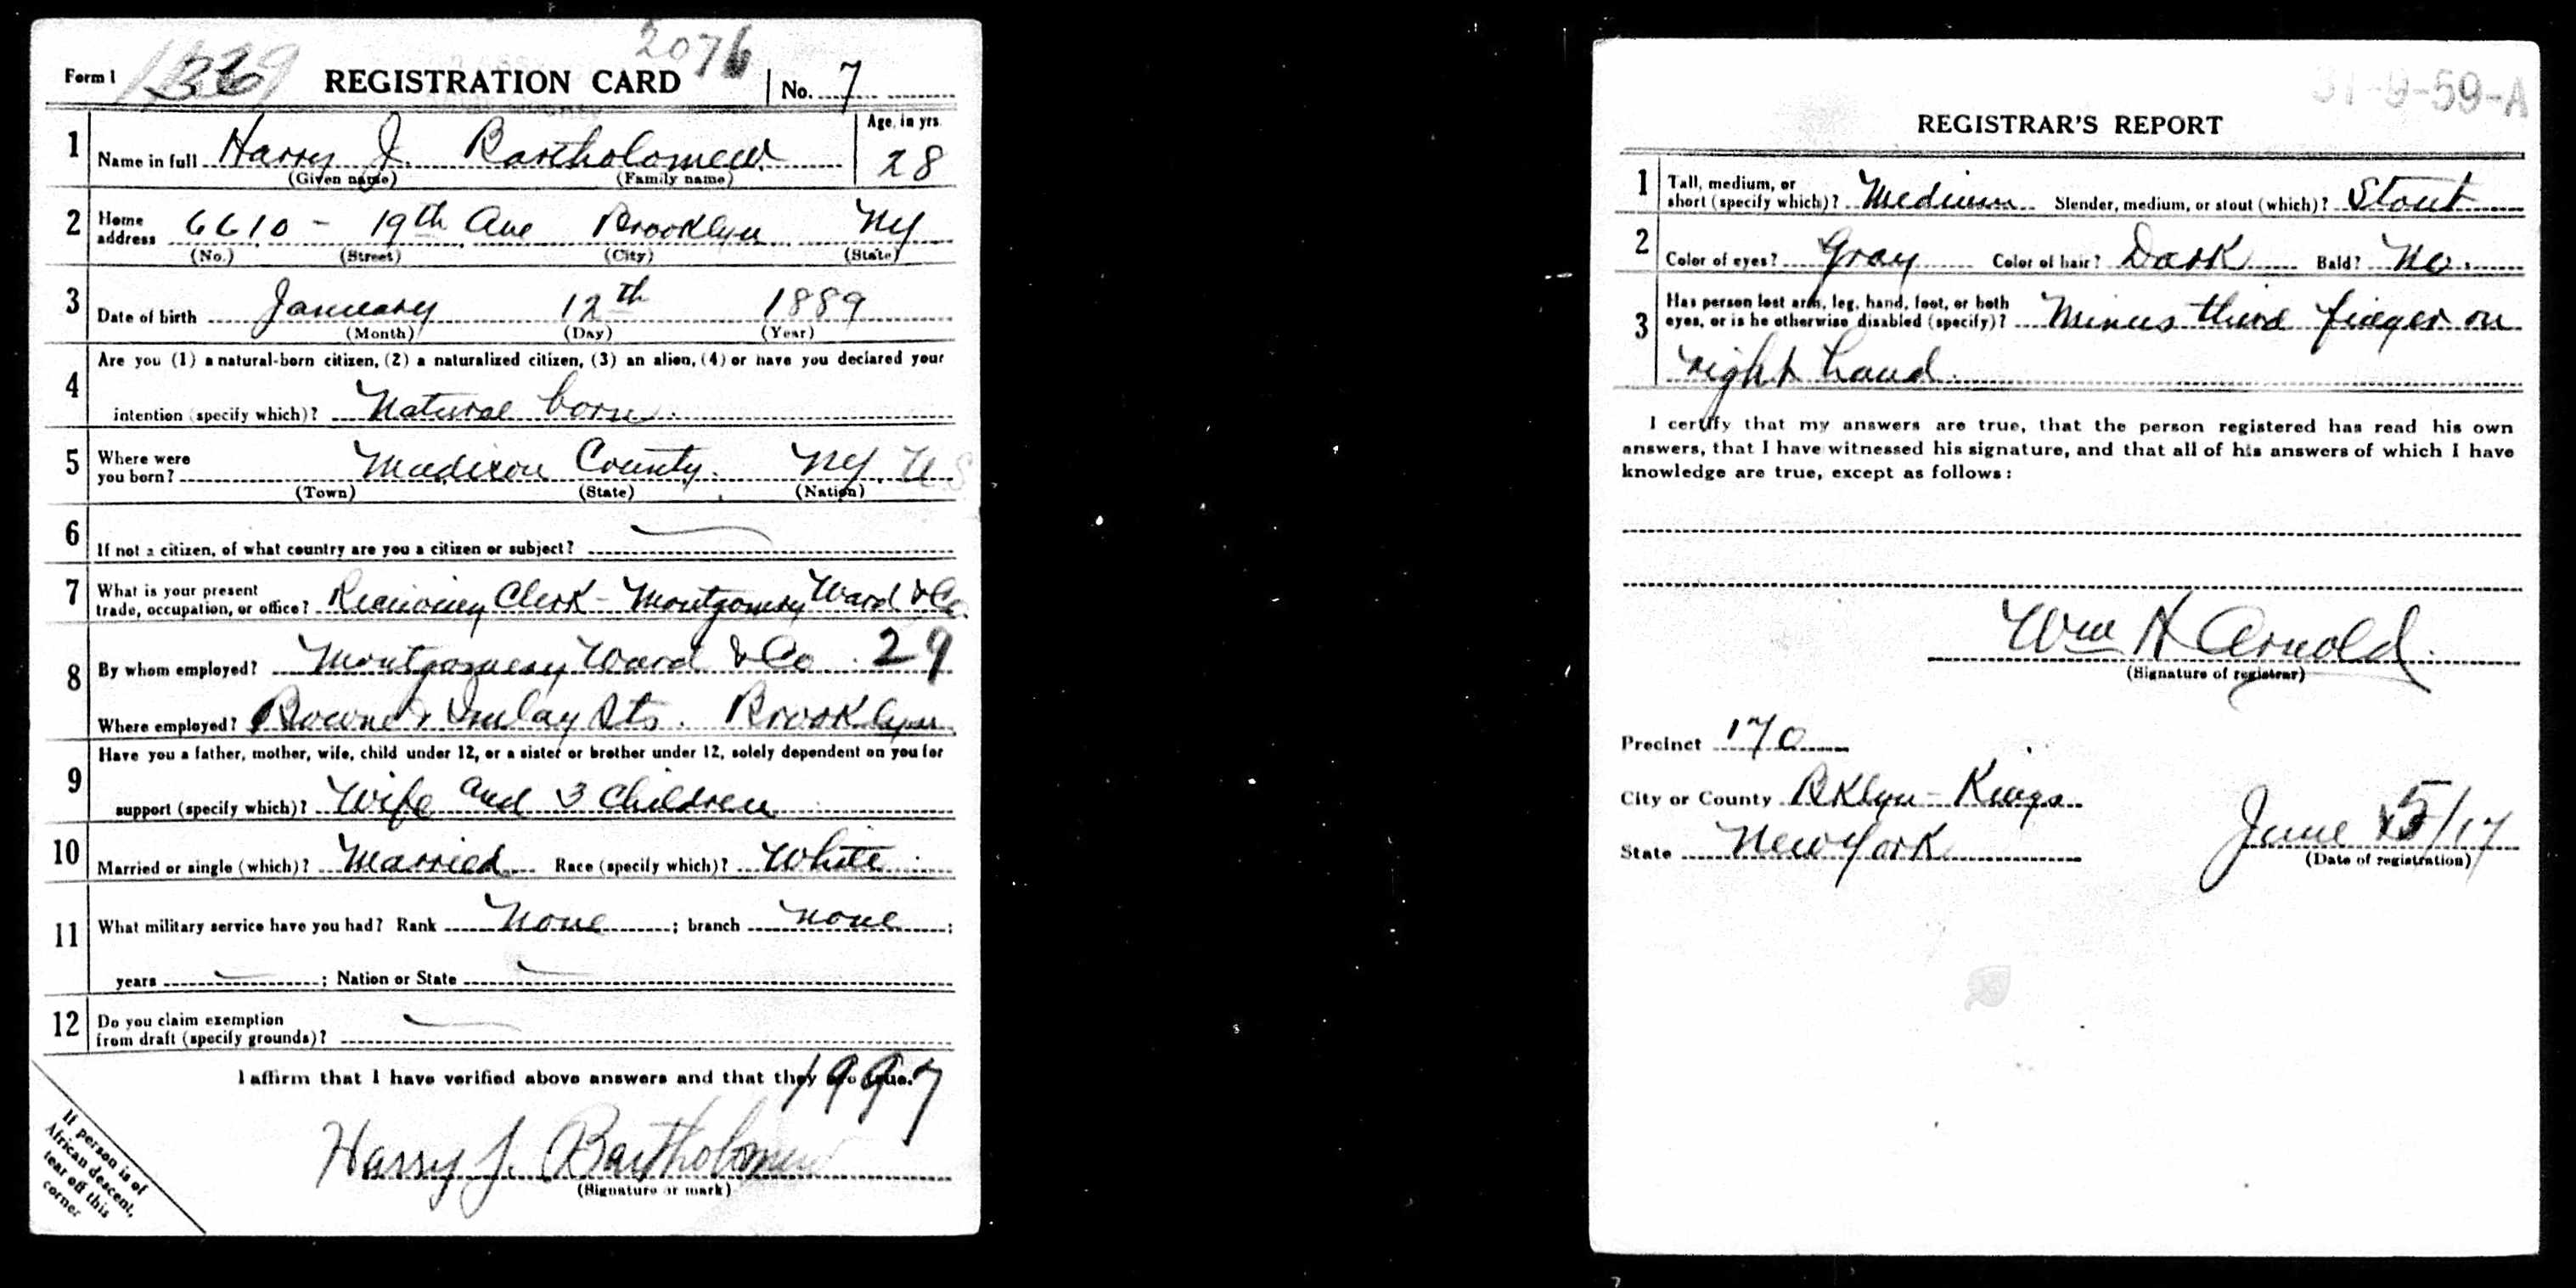 Form 1 1339 REGISTRATION CARD 2076 No. 7
1 Name in full Harry J. Bartholomew. Age, in yrs. 28
(Given name) (Family name)
2 Home address 6610 - 19th Ave Brooklyn NY
(No.) (Street) (City) (State)
3 Date of birth January 12th 1889
(Month) (Day) (Year)
4 Are you (1) a natural-born citizen, (2) a naturalized citizen, (3) an alien, (4) or have you declared your
intention (specify which)? Natural born.
5 Where were you born? Madison County. NY. U S
(Town) (State) (Nation)
6 If not a citizen, of what country are you a citizen or subject?
7 What is your present trade, occupation, or office? Receiving Clerk - Montgomery Ward & Co.
8 By whom employed? Montgomery Ward & Co. 29
Where employed? Bowne & Imlay Sts. Brooklyn
9 Have you a father, mother, wife, child under 12, or a sister or brother under 12, solely dependent on you for
support (specify which)? Wife and 3 Children
10 Married or single (which)? Married Race (specify which)? White
11 What military service have you had? Rank None ; branch none ;
years ; Nation or State
12 Do you claim exemption from draft (specify grounds)?
I affirm that I have verified above answers and that they are true.
1997
Harry J. Bartholomew
(Signature or mark)
If person is of
African descent,
tear off this
corner
31-9-59-A
REGISTRAR'S REPORT
1 Tall, medium, or short (specify which)? Medium Slender, medium, or stout (which)? Stout
2 Color of eyes? Gray Color of hair? Dark Bald? No.
3 Has person lost arm, leg, hand, foot, or both
eyes, or is he otherwise disabled (specify)? Minus third finger on
right hand.
I certify that my answers are true, that the person registered has read his own
answers, that I have witnessed his signature, and that all of his answers of which I have
knowledge are true, except as follows:
Wm H Arnold.
(Signature of registrar)
Precinct 170
City or County BKlyn - Kings
State New York
June 5/17
(Date of registration)